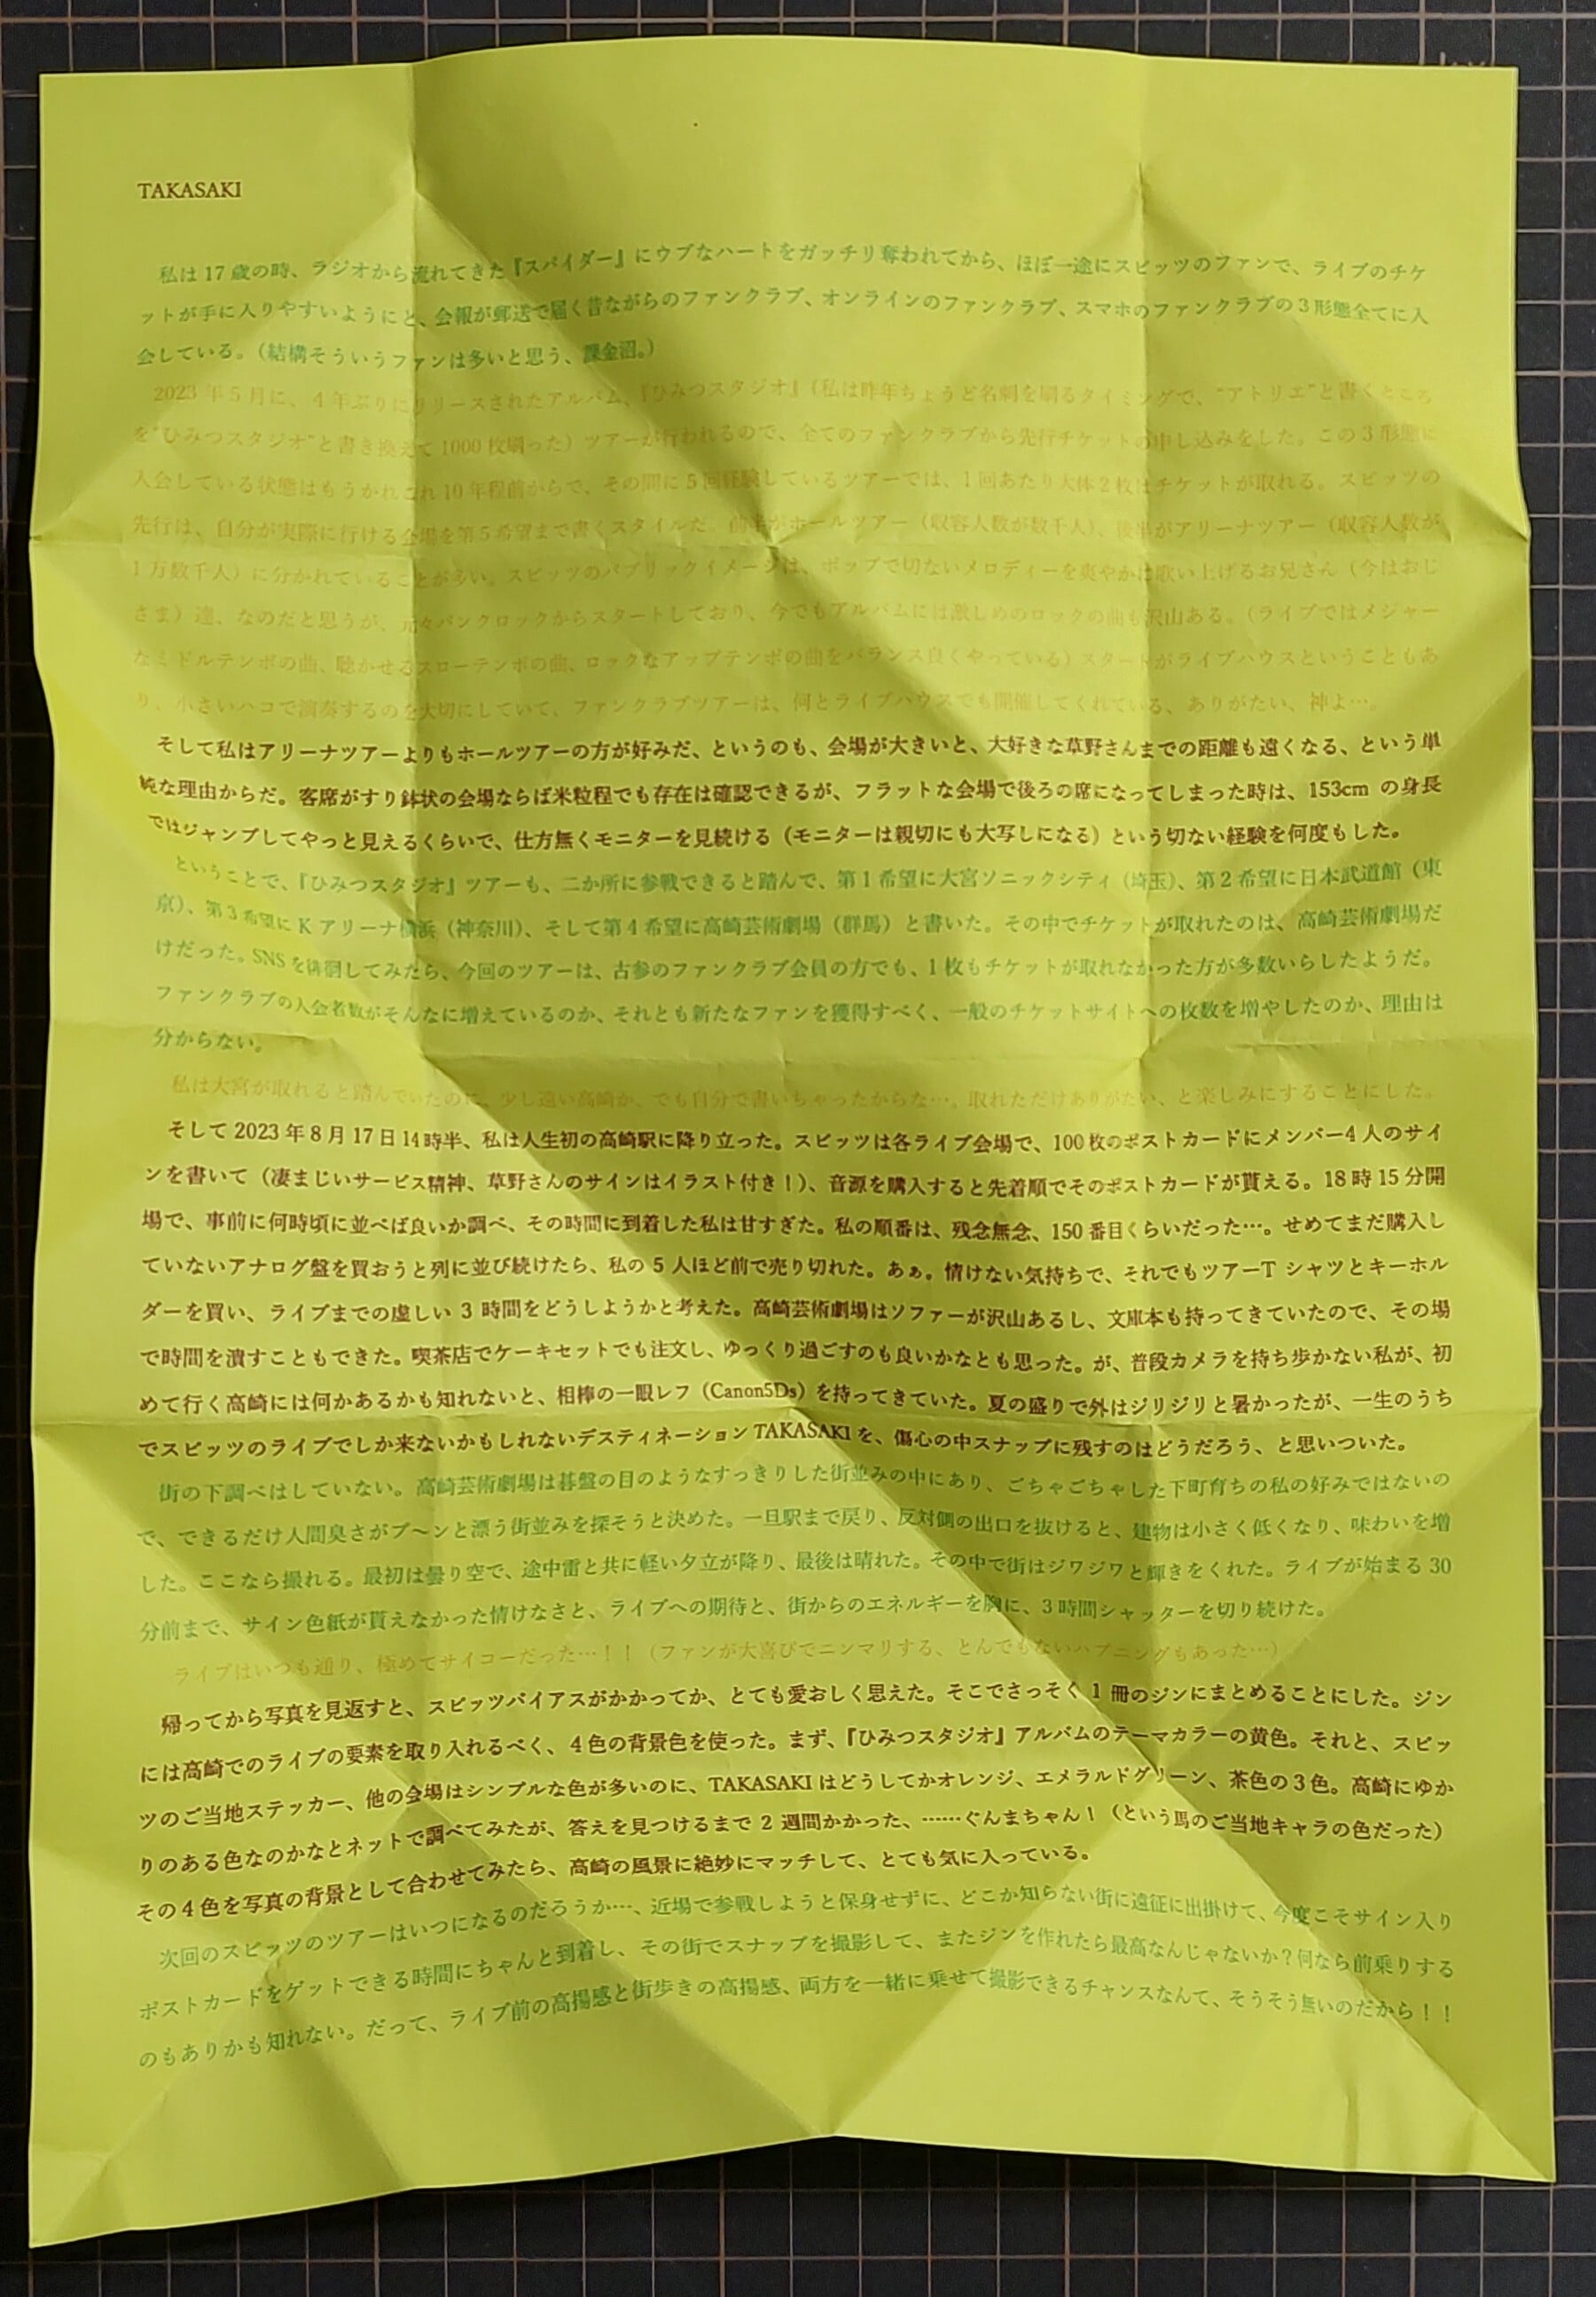 TAKASAKI
私は17歳の時、ラジオから流れてきた『スパイダー』にウブなハートをガッチリ奪われてから、ほぼ一途にスピッツのファンで、ライブのチケ
ットが手に入りやすいようにと、会報が郵送で届く昔ながらのファンクラブ、オンラインのファンクラブ、スマホのファンクラブの3形態全てに入
会している。（結構そういうファンは多いと思う、課金沼。）
2023年5月に、4年ぶりにリリースされたアルバム、『ひみつスタジオ』（私は昨年ちょうど名刺を刷るタイミングで、"アトリエ"と書くところ
を"ひみつスタジオ"と書き換えて1000枚刷った）ツアーが行われるので、全てのファンクラブから先行チケットの申し込みをした。この3形態に
入会している状態はもうかれこれ10年程前からで、その間に5回経験しているツアーでは、1回あたり大体2枚はチケットが取れる。スピッツの
先行は、自分が実際に行ける会場を第5希望まで書くスタイルだ。前半がホールツアー（収容人数が数千人）、後半がアリーナツアー（収容人数が
1万数千人）に分かれていることが多い。スピッツのパブリックイメージは、ポップで切ないメロディーを爽やかに歌い上げるお兄さん（今はおじ
さま）達、なのだと思うが、元々パンクロックからスタートしており、今でもアルバムには激しめのロックの曲も沢山ある。（ライブではメジャー
なミドルテンポの曲、聴かせるスローテンポの曲、ロックなアップテンポの曲をバランス良くやっている）スタートがライブハウスということもあ
り、小さいハコで演奏するのを大切にしていて、ファンクラブツアーは、何とライブハウスでも開催してくれている、ありがたい、神よ…。
そして私はアリーナツアーよりもホールツアーの方が好みだ、というのも、会場が大きいと、大好きな草野さんまでの距離も遠くなる、という単
純な理由からだ。客席がすり鉢状の会場ならば米粒程でも存在は確認できるが、フラットな会場で後ろの席になってしまった時は、153cmの身長
ではジャンプしてやっと見えるくらいで、仕方無くモニターを見続ける（モニターは親切にも大写しになる）という切ない経験を何度もした。
ということで、『ひみつスタジオ』ツアーも、二か所に参戦できると踏んで、第1希望に大宮ソニックシティ（埼玉）、第2希望に日本武道館（東
京）、第3希望にKアリーナ横浜（神奈川）、そして第4希望に高崎芸術劇場（群馬）と書いた。その中でチケットが取れたのは、高崎芸術劇場だ
けだった。SNSを徘徊してみたら、今回のツアーは、古参のファンクラブ会員の方でも、1枚もチケットが取れなかった方が多数いらしたようだ。
ファンクラブの入会者数がそんなに増えているのか、それとも新たなファンを獲得すべく、一般のチケットサイトへの枚数を増やしたのか、理由は
分からない。
私は大宮が取れると踏んでいたのに、少し遠い高崎か、でも自分で書いちゃったからな…。取れただけありがたい、と楽しみにすることにした。
そして2023年8月17日14時半、私は人生初の高崎駅に降り立った。スピッツは各ライブ会場で、100枚のポストカードにメンバー4人のサイ
ンを書いて（凄まじいサービス精神、草野さんのサインはイラスト付き！）、音源を購入すると先着順でそのポストカードが貰える。18時15分開
場で、事前に何時頃に並べば良いか調べ、その時間に到着した私は甘すぎた。私の順番は、残念無念、150番目くらいだった…。せめてまだ購入し
ていないアナログ盤を買おうと列に並び続けたら、私の5人ほど前で売り切れた。あぁ。情けない気持ちで、それでもツアーTシャツとキーホル
ダーを買い、ライブまでの虚しい3時間をどうしようかと考えた。高崎芸術劇場はソファーが沢山あるし、文庫本も持ってきていたので、その場
で時間を潰すこともできた。喫茶店でケーキセットでも注文し、ゆっくり過ごすのも良いかなとも思った。が、普段カメラを持ち歩かない私が、初
めて行く高崎には何かあるかも知れないと、相棒の一眼レフ（Canon5Ds）を持ってきていた。夏の盛りで外はジリジリと暑かったが、一生のうち
でスピッツのライブでしか来ないかもしれないデスティネーションTAKASAKIを、傷心の中スナップに残すのはどうだろう、と思いついた。
街の下調べはしていない。高崎芸術劇場は碁盤の目のようなすっきりした街並みの中にあり、ごちゃごちゃした下町育ちの私の好みではないの
で、できるだけ人間臭さがプ〜ンと漂う街並みを探そうと決めた。一旦駅まで戻り、反対側の出口を抜けると、建物は小さく低くなり、味わいを増
した。ここなら撮れる。最初は曇り空で、途中雷と共に軽い夕立が降り、最後は晴れた。その中で街はジワジワと輝きをくれた。ライブが始まる30
分前まで、サイン色紙が貰えなかった情けなさと、ライブへの期待と、街からのエネルギーを胸に、3時間シャッターを切り続けた。
ライブはいつも通り、極めてサイコーだった…！！（ファンが大喜びでニンマリする、とんでもないハプニングもあった…）
帰ってから写真を見返すと、スピッツバイアスがかかってか、とても愛おしく思えた。そこでさっそく1冊のジンにまとめることにした。ジン
には高崎でのライブの要素を取り入れるべく、4色の背景色を使った。まず、『ひみつスタジオ』アルバムのテーマカラーの黄色。それと、スピッ
ツのご当地ステッカー、他の会場はシンプルな色が多いのに、TAKASAKIはどうしてかオレンジ、エメラルドグリーン、茶色の3色。高崎にゆか
りのある色なのかなとネットで調べてみたが、答えを見つけるまで2週間かかった、……ぐんまちゃん！（という馬のご当地キャラの色だった）
その4色を写真の背景として合わせてみたら、高崎の風景に絶妙にマッチして、とても気に入っている。
次回のスピッツのツアーはいつになるのだろうか…、近場で参戦しようと保身せずに、どこか知らない街に遠征に出掛けて、今度こそサイン入り
ポストカードをゲットできる時間にちゃんと到着し、その街でスナップを撮影して、またジンを作れたら最高なんじゃないか？何なら前乗りする
のもありかも知れない。だって、ライブ前の高揚感と街歩きの高揚感、両方を一緒に乗せて撮影できるチャンスなんて、そうそう無いのだから！！